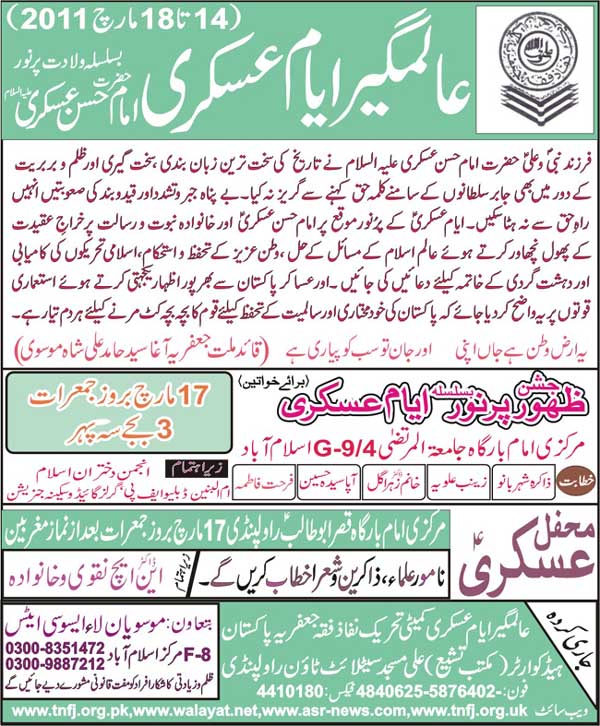 (14 تا 18 مارچ 2011)
عالمگیر ایام عسکری
بسلسلہ ولادت پرنور
حضرت امام حسن عسکری علیہ السلام
فرزند نبیؐ و علیؑ حضرت امام حسن عسکری علیہ السلام نے تاریخ کی سخت ترین زبان بندی سخت گیری اور ظلم و بربریت
کے دور میں بھی جابر سلطانوں کے سامنے کلمہ حق کہنے سے گریز نہ کیا۔ بے پناہ جبر و تشدد اور قید و بند کی صعوبتیں انہیں
راہ حق سے نہ ہٹا سکیں۔ ایام عسکریؑ کے پرنور موقع پر امام حسن عسکریؑ اور خانوادہ نبوت و رسالت پر خراج عقیدت
کے پھول نچھاور کرتے ہوئے عالم اسلام کے مسائل کے حل، وطن عزیز کے تحفظ و استحکام، اسلامی تحریکوں کی کامیابی
اور دہشت گردی کے خاتمہ کیلئے دعائیں کی جائیں۔ اور عساکر پاکستان سے بھرپور اظہار یکجہتی کرتے ہوئے استعماری
قوتوں پر یہ واضح کر دیا جائے کہ پاکستان کی خودمختاری اور سالمیت کے تحفظ کیلئے قوم کا بچہ بچہ کٹ مرنے کیلئے ہر دم تیار ہے۔
یہ ارض وطن ہے جاں اپنی اور جان تو سب کو پیاری ہے (قائد ملت جعفریہ آغا سید حامد علی شاہ موسوی)
جشن ظہور پرنور بسلسلہ ایام عسکری (برائے خواتین)
17 مارچ بروز جمعرات
3 بجے سہ پہر
مرکزی امام بارگاہ جامعۃ المرتضیٰ G-9/4 اسلام آباد
خطابت ذاکرہ شہربانو زینب علویہ خانم زہرا گل آپا سیدہ حسین فرحت فاطمہ
زیر اہتمام انجمن دختران اسلام
ام البنین ڈبلیو ایف پی، گرلز گائیڈ و سکینہ جنریشن
محفل عسکریؑ
مرکزی امام بارگاہ قصر ابوطالبؑ راولپنڈی 17 مارچ بروز جمعرات بعد از نماز مغربین
نامور علماء، ذاکرین و شعرا خطاب کریں گے۔ زیر اہتمام ڈاکٹر این ایچ نقوی و خانوادہ
جاری کردہ
عالمگیر ایام عسکری کمیٹی تحریک نفاذ فقہ جعفریہ پاکستان
ہیڈ کوارٹر (مکتب تشیع) علی مسجد سیٹلائٹ ٹاؤن راولپنڈی
فون:- 5876402-4840625 فیکس :4410180
بتعاون: موسویان لاء ایسوسی ایٹس
F-8 مرکز اسلام آباد 0300-8351472
0300-9887212
ظلم و زیادتی کا شکار افراد کو مفت قانونی مشورے دیے جائیں گے
ویب سائٹ www.tnfj.org.pk,www.walayat.net,www.asr-news.com, www.tnfj.org.uk